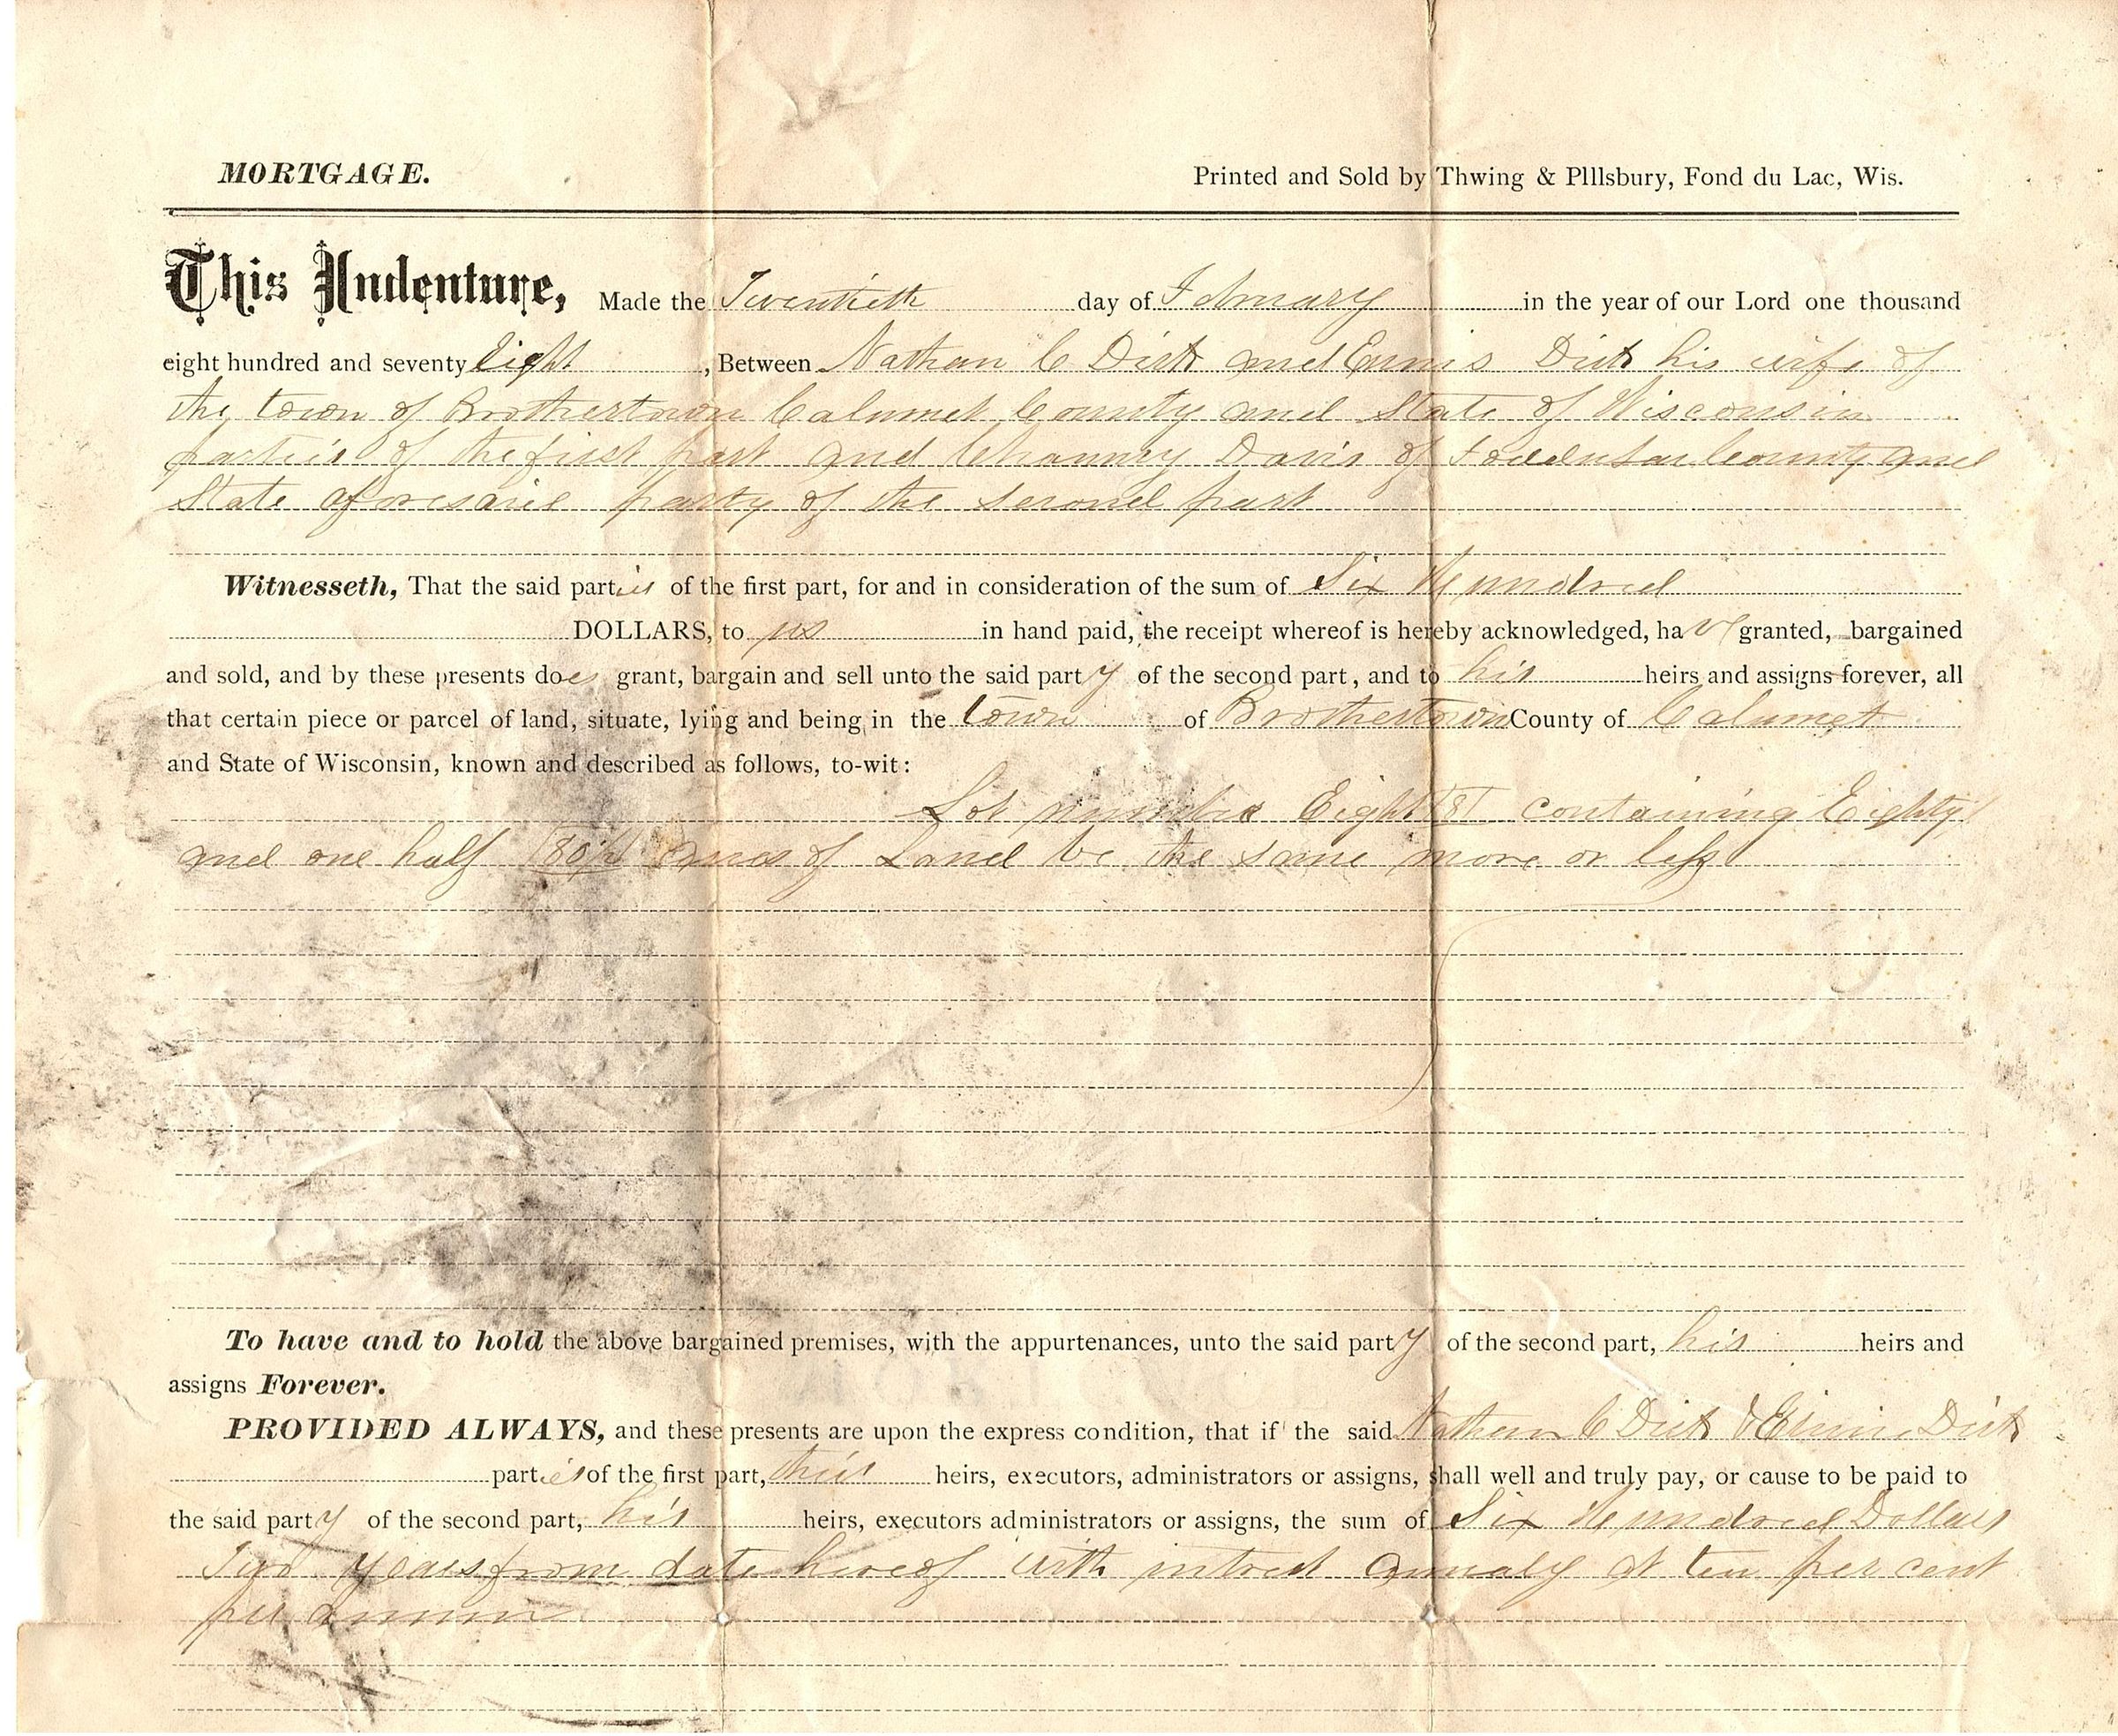 MORTGAGE. Printed and Sold by Thwing & PIllsbury, Fond du Lac, Wis.
This Indenture, Made the Twentieth day of February in the year of our Lord one thousand
eight hundred and seventy Eight , Between Nathan C Dick and Dick his wife of
the town of Brothertown Calumet County and State of Wisconsin
parties of the first part and Chauncey Davis of Fonddulac County and
State aforesaid party of the second part
Witnesseth, That the said parties of the first part, for and in consideration of the sum of Six Hundred
DOLLARS, to us in hand paid, the receipt whereof is hereby acknowledged, have granted, bargained
and sold, and by these presents does grant, bargain and sell unto the said party of the second part, and to his heirs and assigns forever, all
that certain piece or parcel of land, situate, lying and being in the town of Brothertown County of Calumet
and State of Wisconsin, known and described as follows, to-wit:
Lot number Eight (8) containing Eighty
and one half (80½) acres of Land be the same more or less
To have and to hold the above bargained premises, with the appurtenances, unto the said party of the second part, his heirs and
assigns Forever.
PROVIDED ALWAYS, and these presents are upon the express condition, that if the said Nathan C Dick & Dick
parties of the first part, their heirs, executors, administrators or assigns, shall well and truly pay, or cause to be paid to
the said party of the second part, his heirs, executors administrators or assigns, the sum of Six Hundred Dollars
Two years from date hereof with intrest annualy at ten per cent
per annum